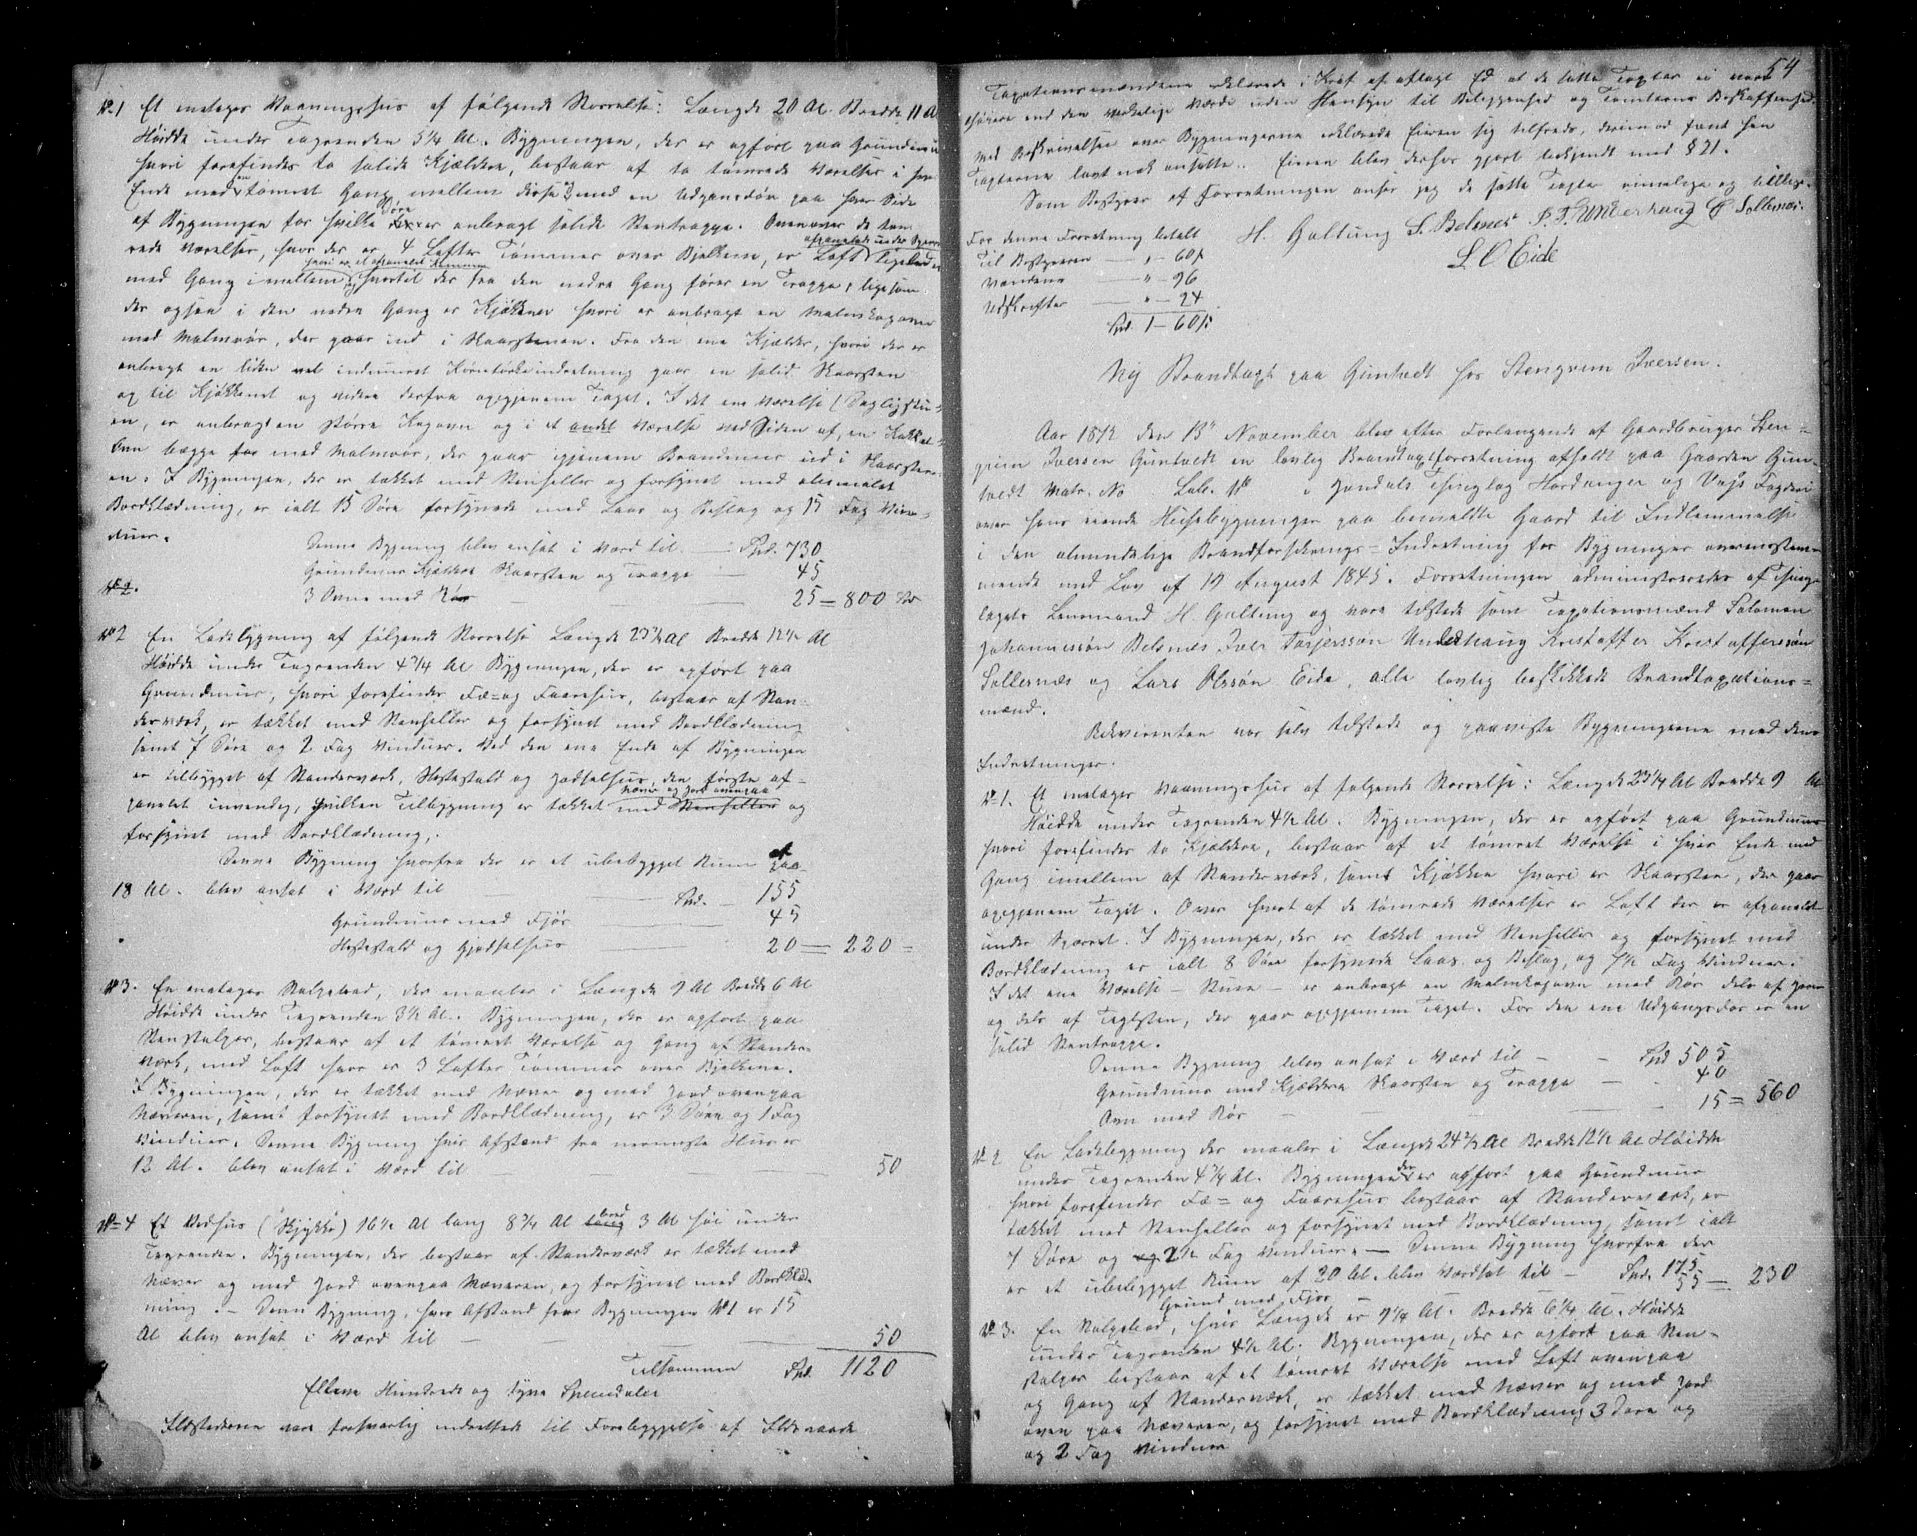 No 1 Et 2 etages Vaaningshus af følgende Størrelse: Længde 20 Al. Bredde 11 Al
Høidde under Tagrenden 5 1/4 Al. Bygningen, der er opført paa Grundmuur
hvori forefindes to solide Kjældere, bestaar af to tømrede Værelser i hver
Ende med en tømret Gang mellem disse med en Udgangsdør paa hver Side
af Bygningen for hvilke Døre er anbragt solide Stentrappe. Ovenover de tøm-
rede Værelser, hvor der er 4 Lofter Tømmer over Bjelkene, er Loft afpanelede under Sperrer ligeledes
med Gang imellem, hvori er et afpanelet Kammer og hvortil der fra den nedre Gang fører en Trappe, ligesom
der ogsaa i den nedre Gang er Kjøkkener hvori er anbragt en Malmkogeovn
med Malmrør, der gaar ind i Skorstenen. Fra den ene Kjælder, hvori der er
anbragt en liden vel indmuret Korntørkeindretning gaar en solid Skorsten
op til Kjøkkenet og videre derfra opgjennem Taget. I det ene Værelse (Dagligstu-
en, er anbragt en større Kogovn og i et andet Værelse ved Siden af, en Kakkel-
ovn begge for med Malmrør, der gaar igjennem Brandmuur ud i Skorsten-
en. I Bygningen, der er tækket med Stenheller og forsynet med oliemalet
Bordklædning, er ialt 15 Døre forsynede med Laas og Beslag og 15 Fag Vin-
duer.
Denne Bygning blev ansat i Værd til — Spd. 730
Grundmuur Kjældere Skorsten og Trappe — 45
No 2.
3 Ovne med Rør — 25 = 800 Spd
No 2 En Ladebygning af følgende Størrelse Længde 23 1/2 Al Bredde 12 1/2 Al
Høidde under Tagrenden 4 3/4 Al Bygningen, der er opført paa
Grundmuur, hvori forefindes Fæ= og Faarehus, bestaar af Stan-
derværk, er tækket med Stenheller og forsynet med Bordklædning
samt 7 Døre og 2 Fag Vinduer. Ved den ene Ende af Bygningen
er tilbygget af Standerværk, Hestestald og Gjødselhus, den første af-
panelet invendig, hvilken Tilbygning er tækket med Stenheller Næver og Jord ovenpaa og
forsynet med Bordklædning.
Denne Bygning hvorfra der er et ubebygget Rum af paa
18 Al. blev ansat i Værd til — Spd. — 155
Grundmuur med Fjør — 45
Hestestald og Gjødselhus — 20 — 220 =
No 3. En 2 etages Stolpebod, der maaler i Længde 9 Al Bredde 6 Al
Høidde under Tagrenden 3 1/2 Al. Bygningen, der er opført paa
Stenstolper, bestaar af et tømret Værelse og Gang af Stander-
værk, med Loft hvor er 3 Lofter Tømmer over Bjelkene.
I Bygningen, der er tækket med Næver og med Jord ovenpaa
Næveren, samt forsynet med Bordklædning, er 3 Døre og 1 Fag
Vinduer. Denne Bygning hvis Afstand fra nærmeste Huus er
12 Al. blev ansat i Værd til — 50
No 4 Et Vedhus (Skjykke) 16 1/2 Al lang 8 3/4 Al lang bred 3 Al høi under
Tagrenden. Bygningen, der bestaar af Standerværk er tækket med
Næver og med Jord ovenpaa Næveren, og forsynet med Bordklæd-
ning. — Denne Bygning, hvis Afstand fra Bygningen No 1 er 15
Al blev ansat i Værd til — 50
Tilsammen Spd. 1120
Elleve Hundrede og tyve Speciedaler
Ildstederne vare forsvarlig indrettede til Forebyggelse af Ildsvaade
54
Taxationsmændene erklærede i Kraft af aflagt Ed at de satte Taxter ei vare
høiere end den virkelige Værdi uden Hensyn til Beliggenhed og Tomternes Beskaffenhed.
Med Beskrivelsen over Bygningerne erklærede Eieren sig tilfreds, derimod fandt han
Taxterne lavt nok ansatte. Eieren blev derfor gjort bekjendt med § 21.
Som Bestyrer af Forretningen anser jeg de satte Taxter rimelige og billige.
H. Galtung S. Belsnes I. T. Underhaug K. Sollesnæs.
L O Eide
For denne Forretning betalt
Til Bestyreren — 1 - 60 ß
Mændene — " - 96
Udskrifter — " - 24
Spd. 1 - 60 ß
Ny Brandtaxt paa Guntvedt hos Stengrim Iversen.
Aar 1872 den 13de November blev efter Forlangende af Gaardbruger Sten-
grim Iversen Guntvedt en lovlig Brandtaxtforretning afholdt paa Gaarden Gun-
tvedt Matr. No Løb. No i Jondals Thinglag Hardanger og Voss Fogderi
over hans eiende Husebygninger paa bemeldte Gaard til Indlemmelse
i den almindelige Brandforsikrings=Indretning for Bygninger overensstem-
mende med Lov af 19 August 1845. Forretningen administreredes af Thing-
lagets Lensmand H. Galtung og vare tilstede som Taxationsmænd Salomon
Johannessøn Belsnæs Iver Torjersson Underhaug Kristoffer Kristoffersøn
Sollesnæs og Lars Olssøn Eide, alle lovlig beskikkede Brandtaxations=
mænd.
Rekvirenten var selv tilstede og paaviste Bygningerne med deres
Indretninger.
No 1. Et 2 etages Vaaningshus af følgende Størrelse: Længde 23 1/4 Al Bredde 9 Al
Høidde under Tagrenden 4 1/2 Al. Bygningen, der er opført paa Grundmuur
hvori forefindes to Kjældere, bestaar af et tømret Værelse i hver Ende med
Gang imellem af Standerværk, samt Kjøkken hvori er Skorsten, der gaar
opgjennem Taget. Over hvert af de tømrede Værelser er Loft der er afpanelet
under Sperret. I Bygningen, der er tækket med Stenheller og forsynet med
Bordklædning er ialt 8 Døre forsynede Laas og Beslag, og 7 1/2 Fag Vinduer.
I det ene Værelse — Stuen — er anbragt en Malmkogovn med Rør dels af Jern
og dels af Teglsten, der gaar opgjennem Taget. For den ene Udgangsdør er en
solid Stentrappe.
Denne Bygning blev ansat i Værd til — Spd 505
Grundmuur med Kjældere Skorsten og Trappe — 40
Ovn med Rør — 15 = 560
No 2 En Ladebygning der maaler i Længde 24 2/3 Al Bredde 12 1/2 Al Høidde
under Tagrenden 4 3/4 Al. Bygningen der er opført paa Grundmuur
hvori forefindes Fæ= og Faarehus bestaar af Standerværk, er
tækket med Stenheller og forsynet med Bordklædning, samt ialt
7 Døre og og 2 1/2 Fag Vinduer. — Denne Bygning hvorfra der
er et ubebygget Rum af 20 Al. blev værdsat til — Spd. 175
Grund med Fjør — 55 — 230
No 3. En Stolpebod, hvis Længde er 9 1/4 Al. Bredde 6 1/4 Al. Høidde
under Tagrenden 4 1/2 Al. Bygningen, der er opført paa Sten-
stolper bestaar af et tømret Værelse med Loft ovenpaa
og Gang af Standerværk, er tækket med Næver og med Jord
oven paa Næveren, og forsynet med Bordklædning 3 Døre og
og 2 Fag Vinduer